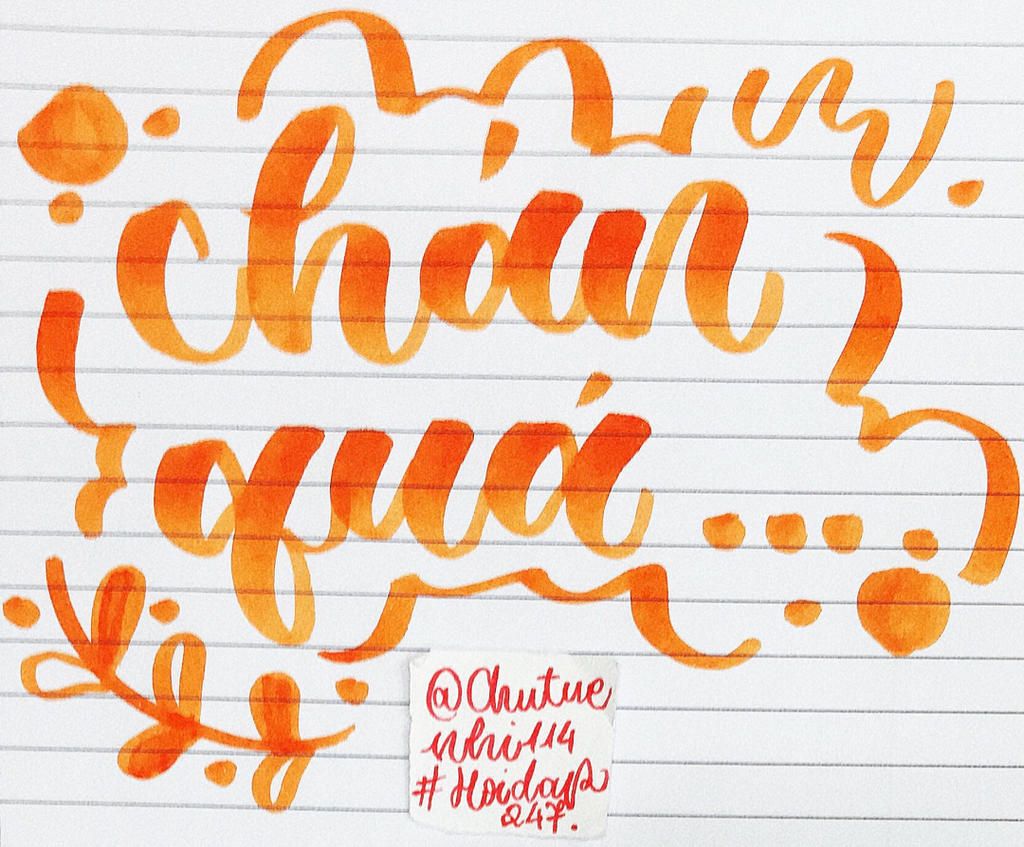 chán
quá....
@Chutue
nhi114
#Hoidap
247.